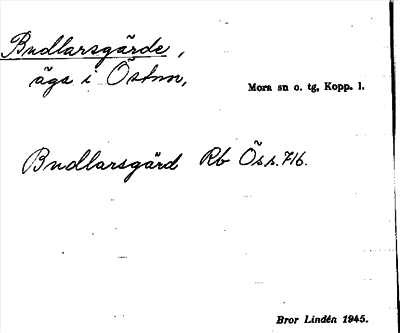 Budlarsgärde,
ägs i Östnor,
Mora sn o. tg, Kopp. l.
Budlarsgärd Rb Ös s. 716.
Bror Lindén 1945.